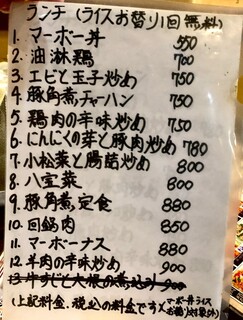 ランチ(ライスお替り1回無料)
1. マーボー丼 550
2. 油淋鶏 700
3. エビと玉子炒め 750
4. 豚角煮チャーハン 750
5. 鶏肉の辛味炒め 750
6. にんにくの芽と豚肉炒め 780
7. 小松菜と腸詰炒め 800
8. 八宝菜 800
9. 豚角煮定食 880
10. 回鍋肉 850
11. マーボーナス 880
12. 羊肉の辛味炒め 900
13. 牛すじと大根の煮込み 900
(上記料金、税込の料金です)
※マーボー丼ライス
お替り対象外